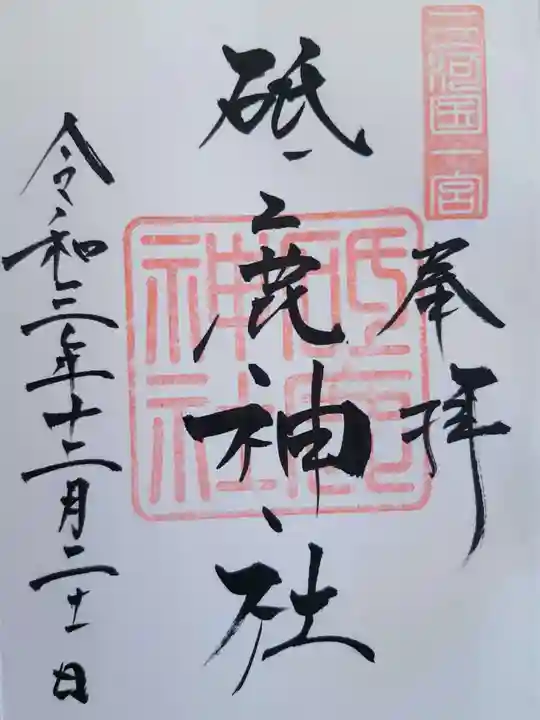 三河国一宮
奉拝
砥鹿神社
砥鹿神社
令和三年十二月二十一日